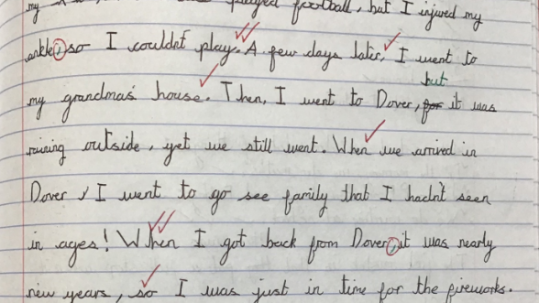 my played football, but I injured my
ankle, so I couldn't play. A few days later, I went to
my grandmas house. Then, I went to Dover, for but it was
raining outside, yet we still went. When we arrived in
Dover, I went to go see family that I hadn't seen
in ages! When I got back from Dover, it was nearly
new years, so I was just in time for the fireworks.